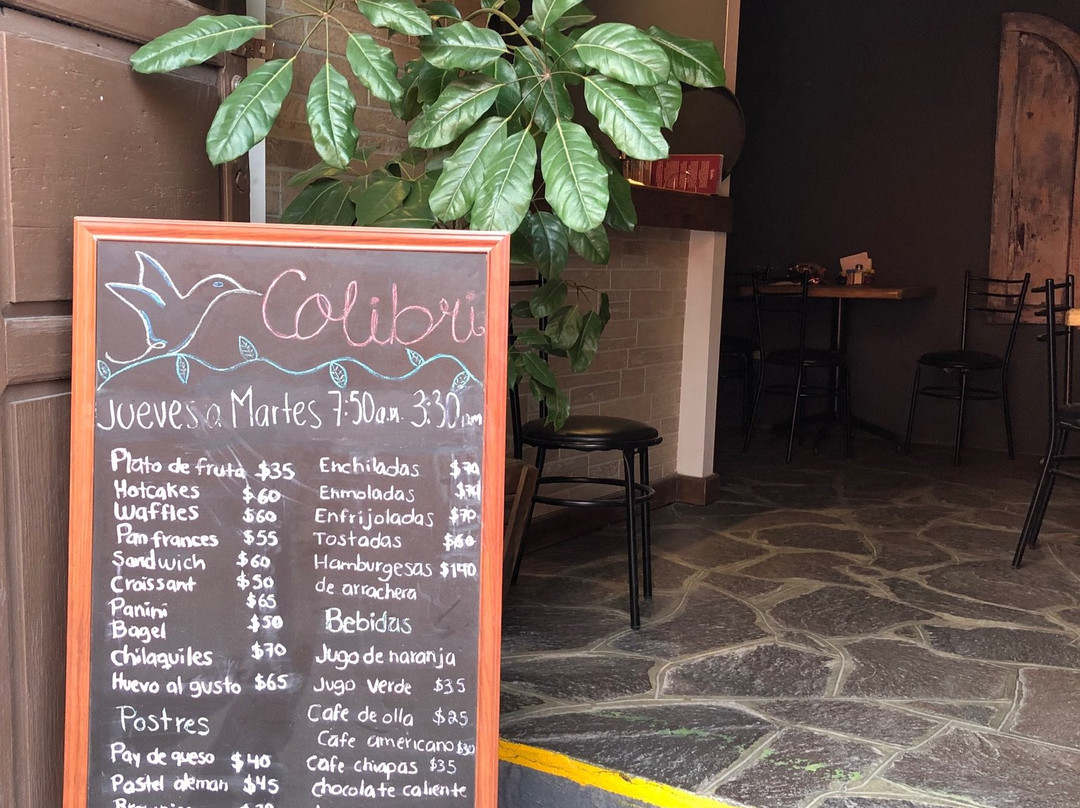 Colibri
Jueves a Martes 7:50a.m. 3:30pm
Plato de fruta $35
Hotcakes $60
Waffles $60
Pan frances $55
Sandwich $60
Croissant $50
Panini $65
Bagel $50
Chilaquiles $70
Huevo al gusto $65
Postres
Pay de queso $40
Pastel aleman $45
Enchiladas $70
Enmoladas $70
Enfrijoladas $70
Tostadas $60
Hamburgesas $140
de arrachera
Bebidas
Jugo de naranja
Jugo Verde $35
Cafe de olla $25
Cafe americano $30
Cafe chiapas $35
chocolate caliente